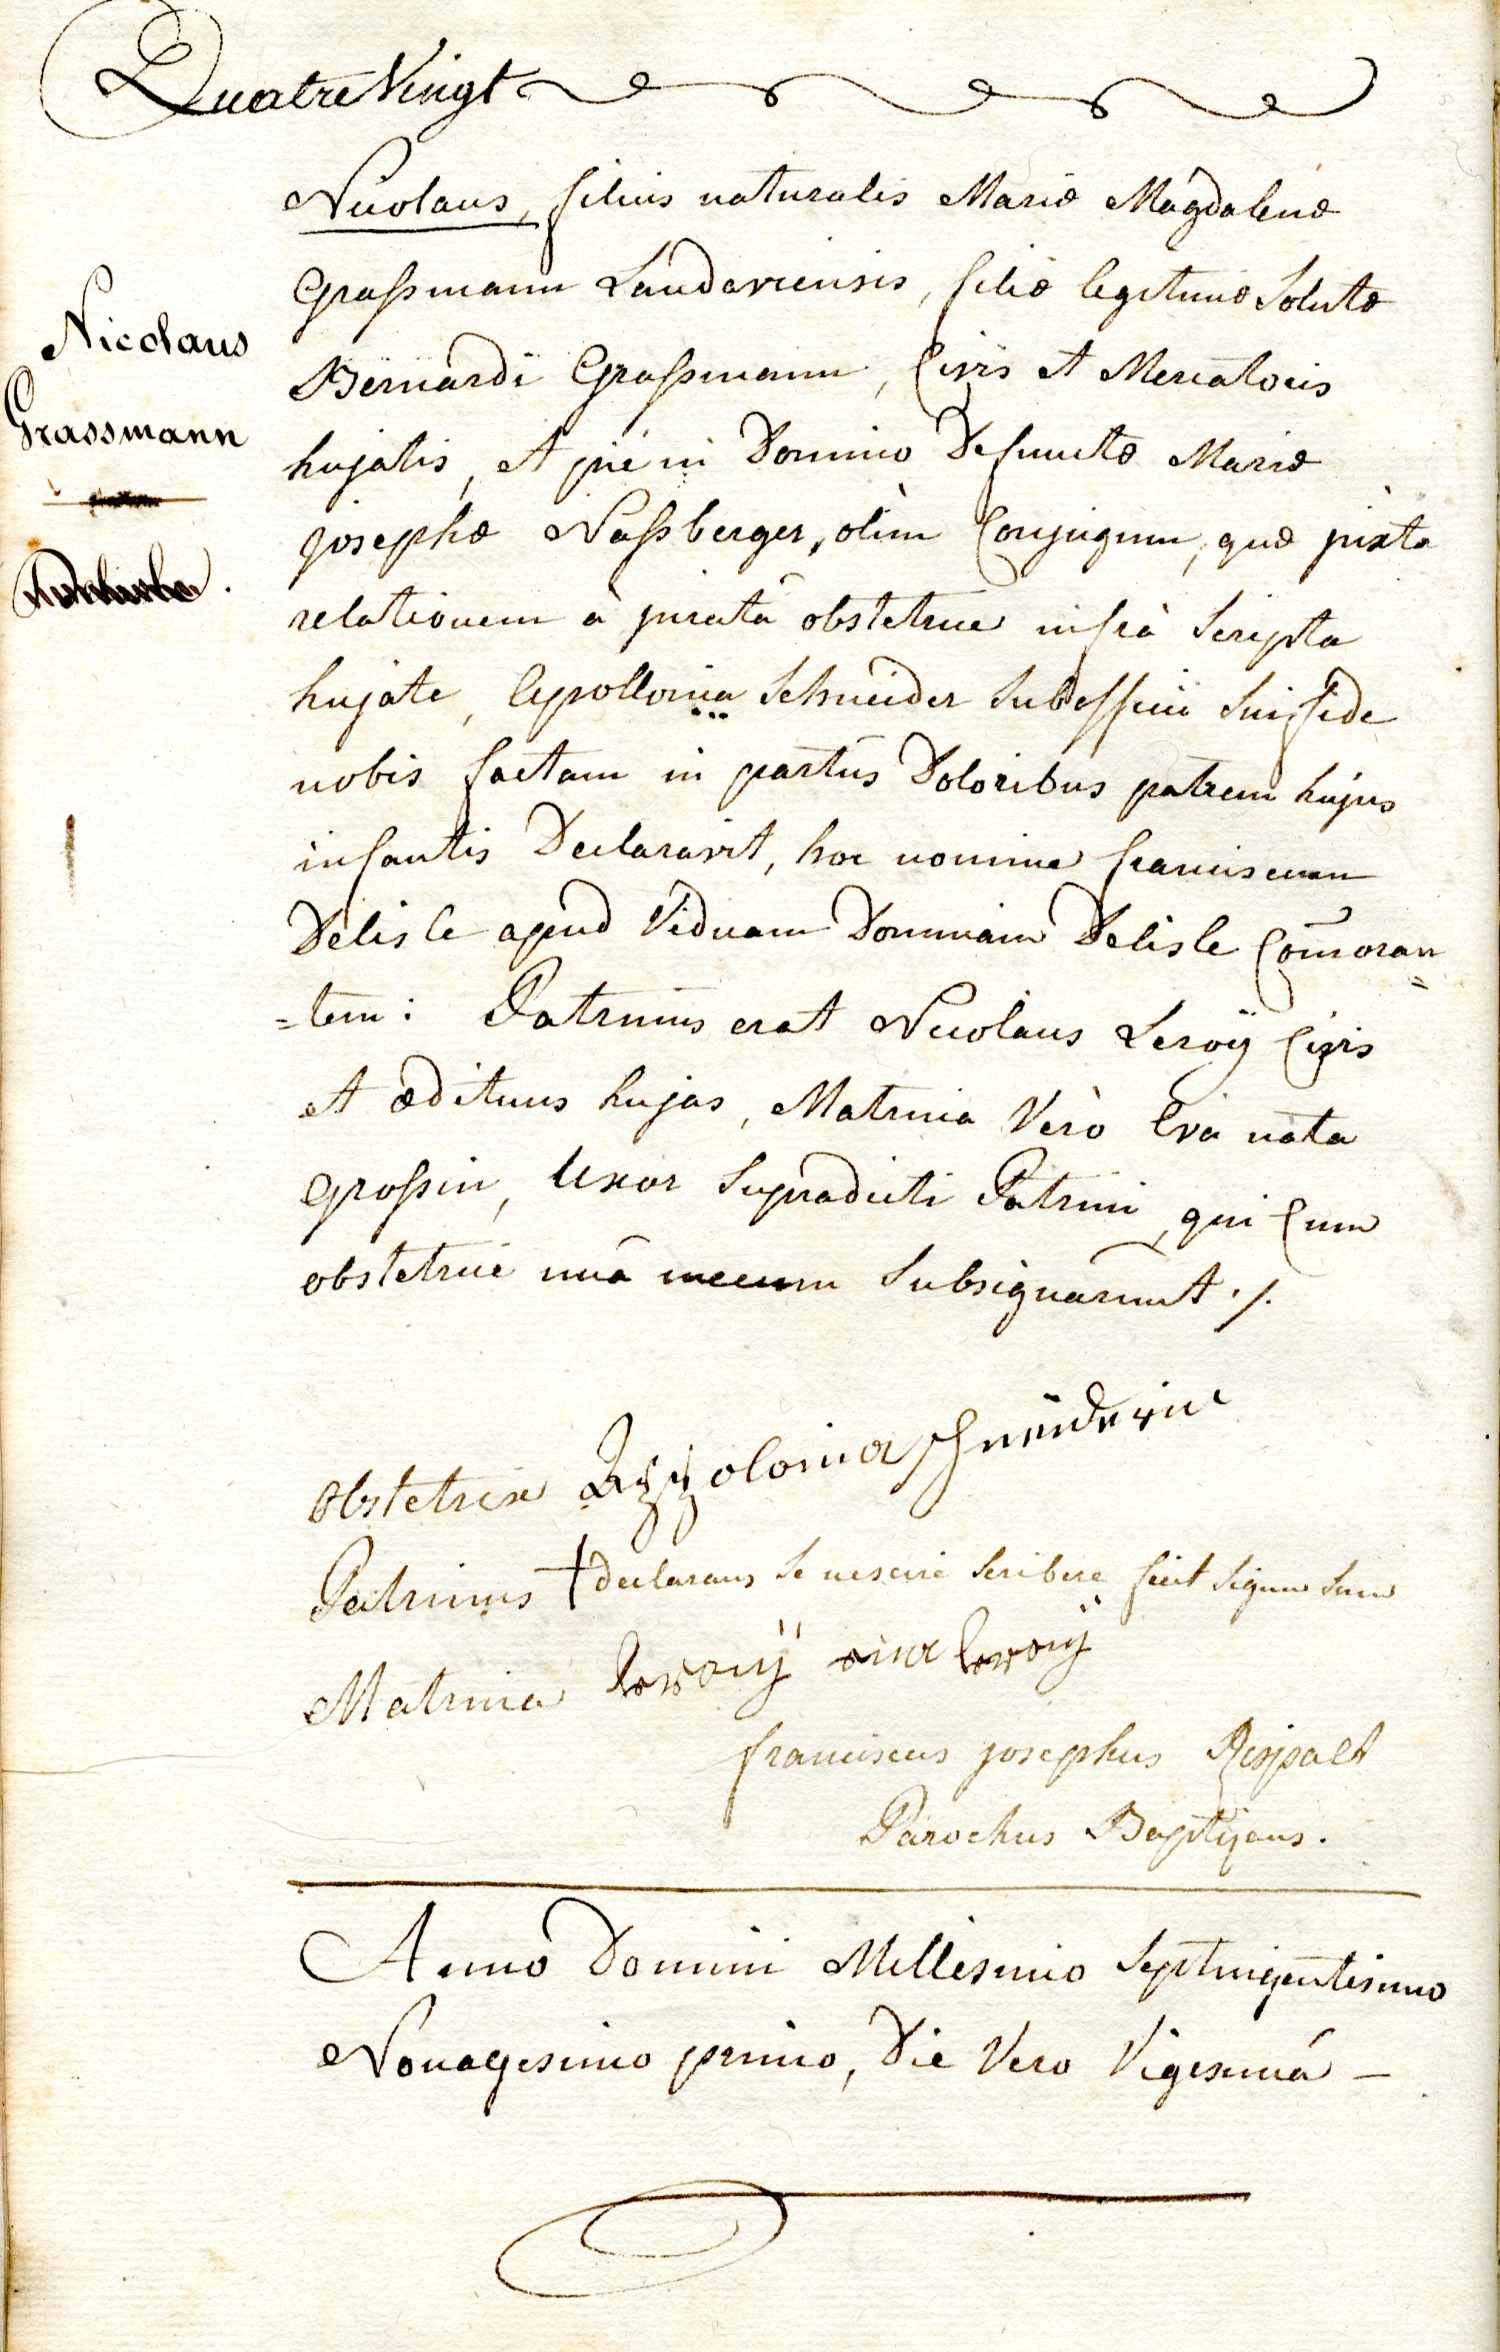 Quatre Vingt
Nicolaus, filius naturalis Mariæ Magdalenæ
Grassmann Landaviensis, filiæ legitimæ Solutæ
Bernardi Grassmann, Civis et Mercatoris
hujatis, et piè in Domino Defunctæ Mariæ
josephæ Nassberger, olim Conjugum, quæ juxta
relationem à juratâ obstetrice infrà Scripta
hujate, Apollonia Schneider Sub essenii Sui fide
nobis factam in partûs Doloribus patrem hujus
infantis Declaravit, hoc nomine franciscum
Delisle apud Viduam Dominam Delisle Com̄oran
=tem: Patrinus erat Nicolaus Leroÿ Civis
et ædituus hujas, Matrina Verò Eva nata
Grossin, Uxor Supradicti Patrini, qui Cum
obstetrice unâ mecum Subsignarunt ./.
Nicolaus
Grassmann
Obstetrix Appolonia schneiderin
Patrinus † declarans Se nescire Scribere fecit Signum Suum
Matrina leroiÿ eva leroiÿ
franciscus josephus Rispalt
Parochus Baptizans.
Anno Domini Millesimo Septingentesimo
Nonagesimo primo, Die Vero Vigesimâ –